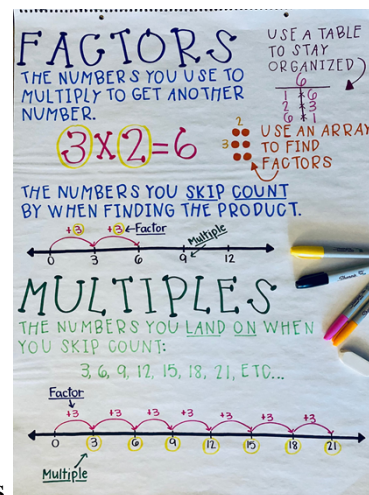 FACTORS
THE NUMBERS YOU USE TO
MULTIPLY TO GET ANOTHER
NUMBER.
3X2=6
USE A TABLE
TO STAY
ORGANIZED
6
1 6
2 3
6 1
2
3
USE AN ARRAY
TO FIND
FACTORS
THE NUMBERS YOU SKIP COUNT
BY WHEN FINDING THE PRODUCT.
+3 +3 ←Factor
Multiple
0 3 6 9 12
MULTIPLES
THE NUMBERS YOU LAND ON WHEN
YOU SKIP COUNT:
3, 6, 9, 12, 15, 18, 21, ETC...
Factor
+3 +3 +3 +3 +3 +3 +3
0 3 6 9 12 15 18 21
Multiple